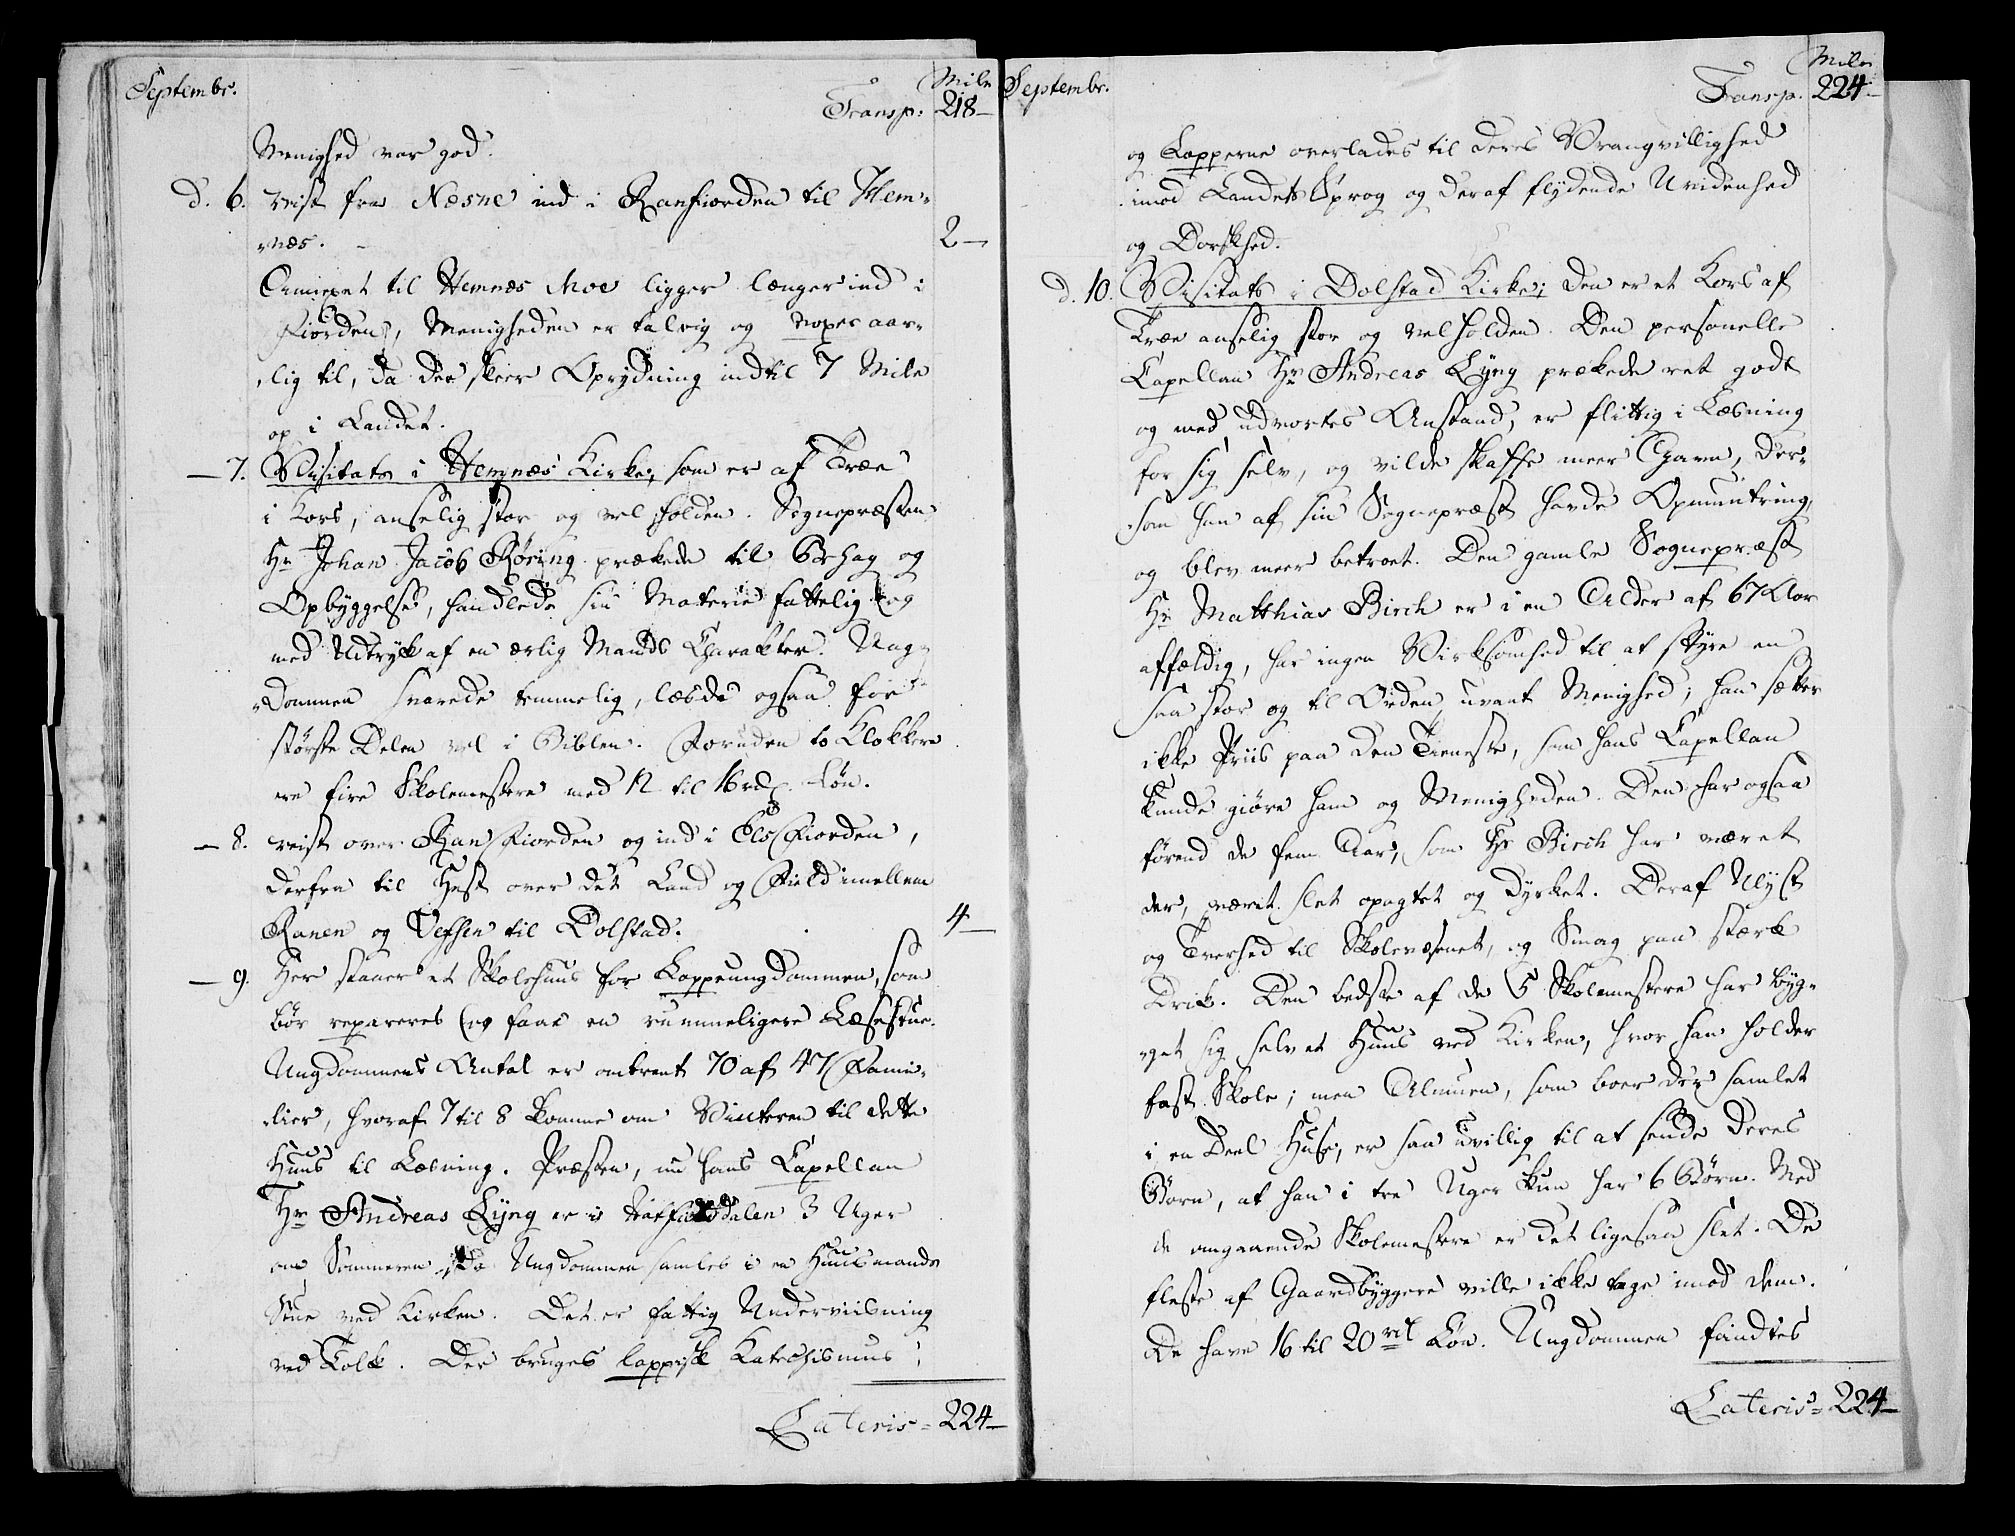 Septembr.
Mile
Transp: 218 —
Menighed var god.
d. 6. reist fra Næsne ind i Ranfiorden til Hem-
næs. 2 —
Annexet til Hemnæs Moe ligger længer ind i
Fiorden, Menigheden er talrig og voxer aar-
lig til, da der skeer Oprydning indtil 7 Mile
op i Landet.
— 7. Visitats i Hemnæs Kirke, som er af Træe
i Kors, anselig stor og vel holden. Sognepræsten
Hr Johan Jacob Røring prækede til Behag og
Opbyggelse, handlede sin Materie fattelig og
med Udtryk af en ærlig Mands Charakter. Ung-
dommen svarede temmelig, læsde ogsaa for
største Delen vel i Biblen. Foruden to Klokkere
ere fire Skolemestere med 12 til 16 rd. Løn.
— 8. reist over Ran Fiorden og ind i Els Fiorden,
derfra til Hest over det Land og Field imellem
Ranen og Vefsen til Dolstad. 4 —
— 9. Her staaer et Skolehuus for Lappeungdommen, som
bør repareres og faae en rummeligere Læsestue.
Ungdommens Antal er omtrent 70 af 47 Fami-
lier, hvoraf 7 til 8 komme om Vinteren til dette
Huus til Læsning. Præsten, nu hans Capellan
Hr Andreas Lyng er i Hatfieldsdalen 3 Uger
om Sommeren, da Ungdommen samles i en Huusmands
Stue ved Kirken. Det er fattig Underviisning
ved Tolk. Der bruges lappisk Katechismus;
Lateris = 224 —
Septembr.
Mile
Transp. 224 —
og Lapperne overlades til deres Vrangvillighed
imod Landets Sprog og deraf flydende Uvidenhed
og Dorskhed.
d. 10. Visitats i Dolstad Kirke; den er et Kors af
Træe anselig stor og vel holden. Den personelle
Capellan Hr Andreas Lyng prækede ret godt
og med udvortes Anstand, er flittig i Læsning
for sig selv, og vilde skaffe meer Gavn, der-
som han af sin Sognepræst havde Opmuntring,
og blev meer betroet. Den gamle Sognepræst
Hr Matthias Birch er i en Alder af 67 Aar
affældig, har ingen Virksomhed til at styre en
saa stor og til Orden uvant Menighed; han sætter
ikke Priis paa den Tieneste, som hans Capellan
kunde giøre ham og Menigheden. Den har ogsaa
førend de fem Aar, som Hr Birch har været
der, været slet opagtet og dyrket. Deraf Ulyst
og Tverhed til Skolevæsenet, og Smag paa stærk
Drik. Den bedste af de 5 Skolemestere har byg-
get sig selv et Huus ved Kirken, hvor han holder
fast Skole; men Almuen, som boer der samlet
i en Deel Huse, er saa uvillig til at sende deres
Børn, at han i tre Uger kun har 6 Børn. Med
de omgaaende Skolemestere er det ligesaa slet. De
fleste af Gaardbyggere ville ikke tage imod dem.
De have 16 til 20 rd Løn. Ungdommen fandtes
Lateris = 224 —